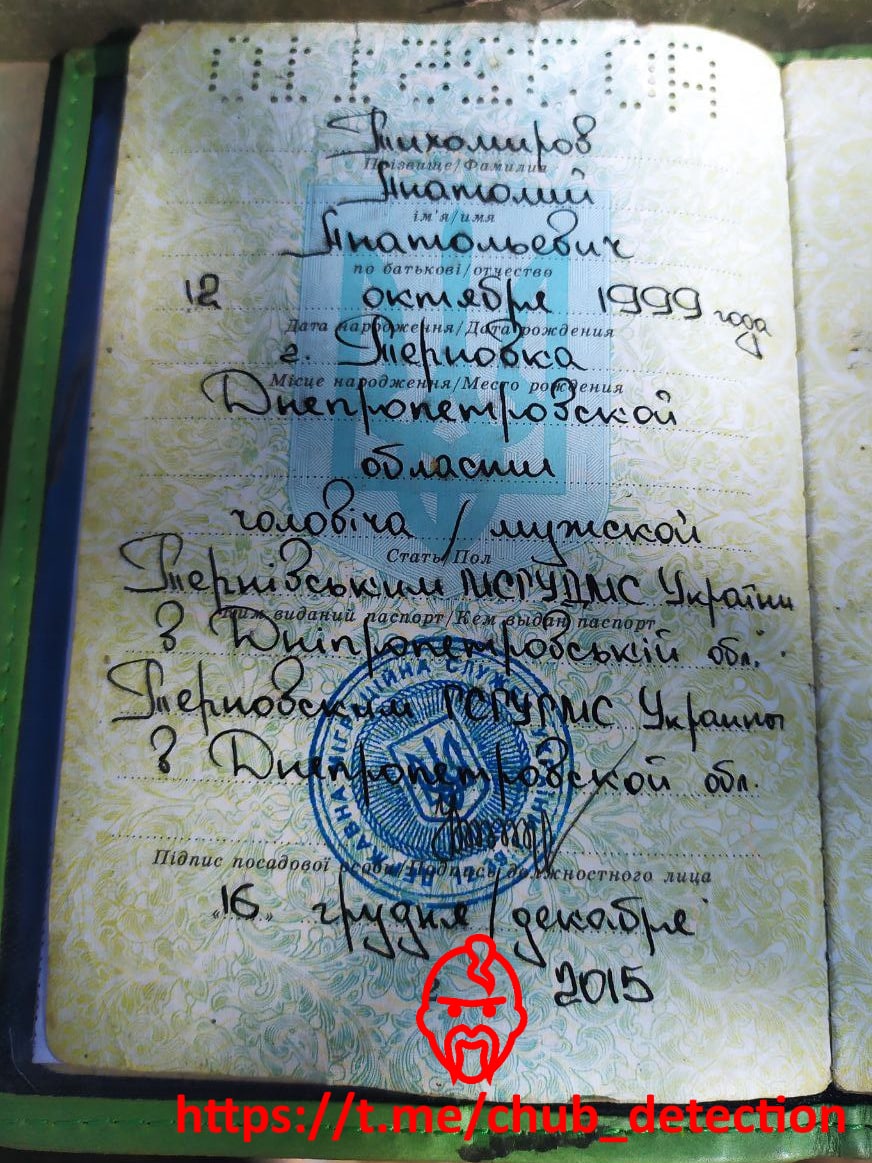 Тихомиров
Прізвище/Фамилия
Анатолий
ім'я/имя
Анатольевич
по батькові/отчество
12 октября 1999 года
Дата народження/Дата рождения
г. Терновка
Місце народження/Место рождения
Днепропетровской
области
чоловіча / мужской
Стать/Пол
Тернівським України
Ким виданий паспорт/Кем выдан паспорт
в Дніпропетровській обл.
Терновским Украины
в Днепропетровской обл.
ДЕРЖАВНА МІГРАЦІЙНА СЛУЖБА
Підпис посадової особи/Подпись должностного лица
«16» грудня / декабря
2015
https://t.me/chub_detection